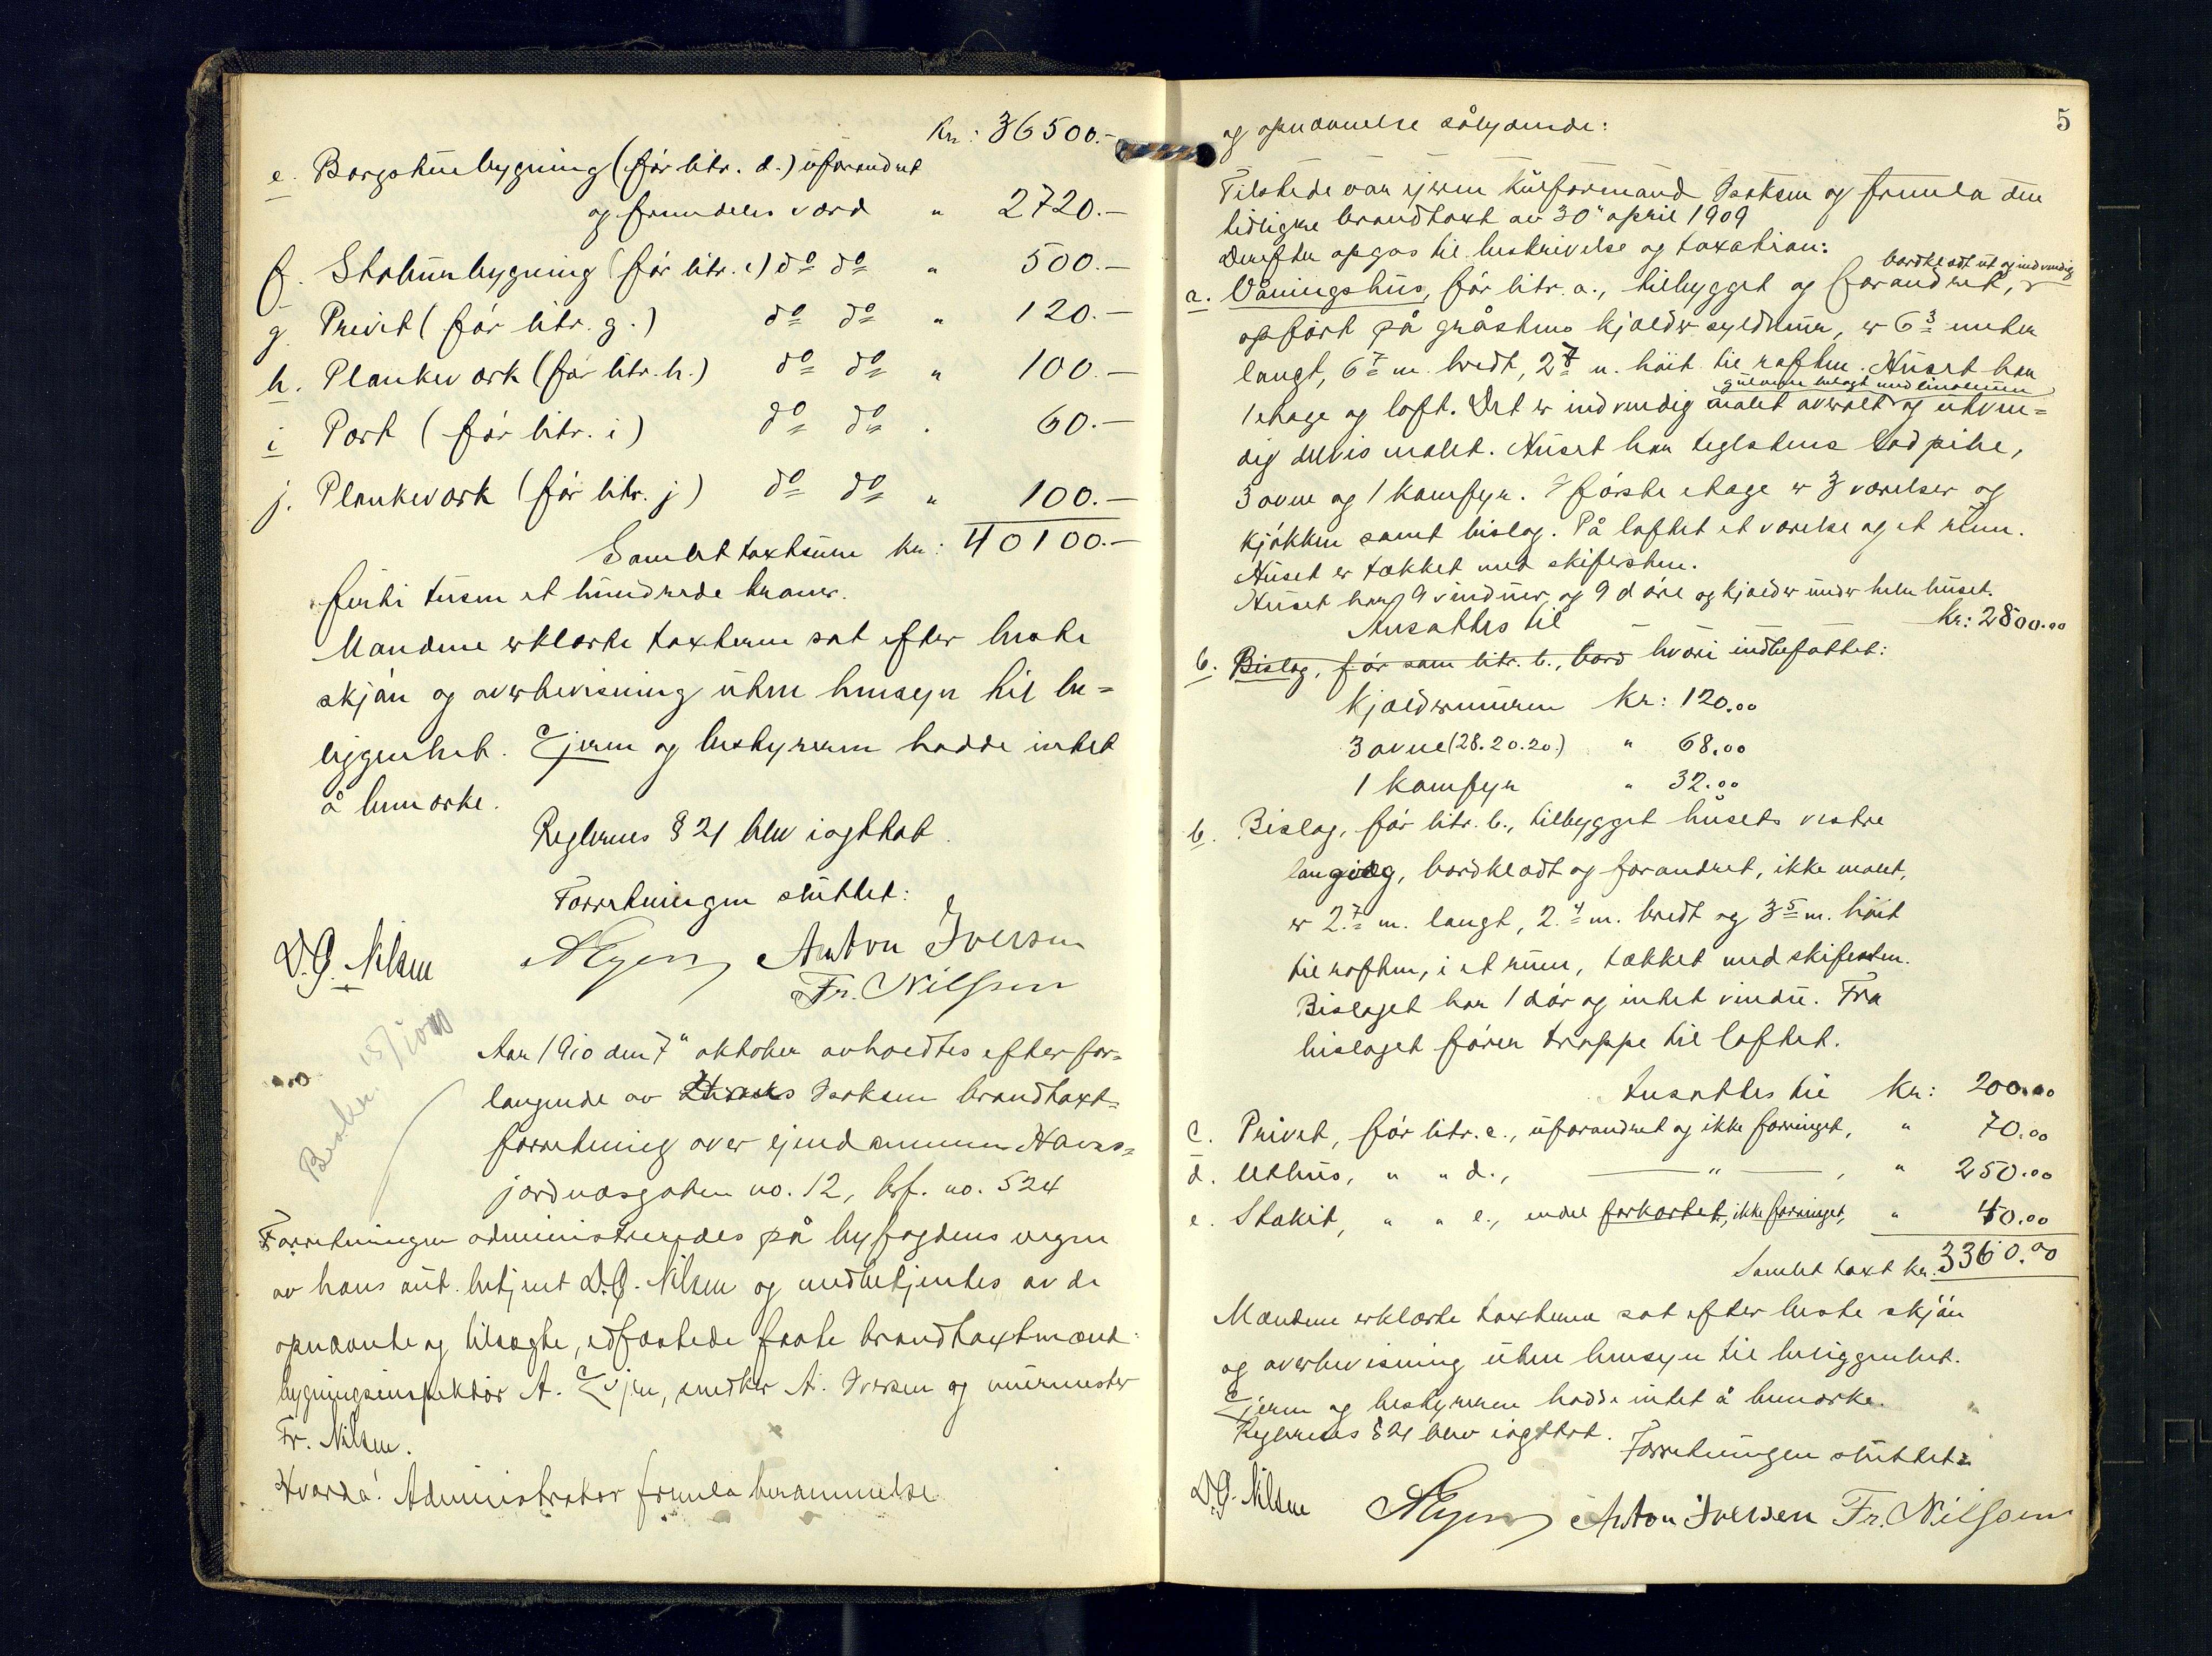 kr: 36500.-
e. Borgstuebygning (før litr. d.) uforandret
og fremdeles værd " 2720.-
f. Stabursbygning (før litr. e) do do " 500.-
g. Privet (før litr. g.) do do " 120.-
h. Plankeverk (før litr. h.) do do " 100.-
i Port (før litr. i) do do " 60.-
j. Plankeværk (før litr. j) do do " 100.-
Samlet taxtsum kr: 40100.-
firti tusen et hundrede kroner.
Mændene erklærte taxterne sat efter beste
skjøn og overbevisning uten hensyn til be=
liggenhet. Ejeren og bestyreren hadde intet
å bemærke.
Reglernes § 21 blev iagttat.
Forretningen sluttet:
D.G. Nilsen AEyen Anton Iversen
Fr. Nilssen
Aar 1910 den 7" oktober avholdtes efter for=
langende av Isaksen brandtaxt=
forretning over ejendommen Havns=
jordnæsgaten no. 12, brf. no. 524
Forretningen administreredes på byfogdens vegne
av hans aut. betjent D.G. Nilsen og medbetjentes av de
opnævnte og tilsagte, edfæstede faste brandtaxtmænd:
bygningsinspektør A. Eyen, snedker A. Iversen og murmester
Fr. Nilsen.
Hvorda! Administrator fremla berammelse
5
og opnævnelse sålydende:
Tilstede var ejeren Isaksen og fremla den
tidligere brandtaxt av 30" april 1909
Derefter opgas til beskrivelse og taxation:
bordklædt ut og indvendig
a. Våningshus, før litr. a., tilbygget og forandret,
opført på gråstens kjælder syldmur, er 6 3 meter
langt, 6 7 m. bredt, 2 7 m. høit til raften. Huset har
gulvene belagt med linoleum
1 etage og loft. Det er indvendig malet overalt og utven=
dig delvis malet. Huset har teglstens lodpipe,
3 ovne og 1 komfyr. I første etage er 3 værelser og
kjøkken samt bislag. På loftet et værelse og et rum.
Huset er tækket med skifersten.
Huset har 9 vinduer og 9 døre og kjælder under hele huset.
Ansattes til kr: 2800.00
b. Bislag, før som litr. b., bord hvori indbefattet:
Kjældermuren kr: 120.00
3 ovne (28. 20. 20.) " 68.00
1 komfyr " 32.00
b. Bislag, før litr. b., tilbygget husets vestre
langvæg, bordklædt og forandret, ikke malet,
er 2.7 m. langt, 2.4 m. bredt og 3 5 m. høit
til raften, i et rum, tækket med skifersten.
Bislaget har 1 dør og intet vindu. Fra
bislaget fører trappe til loftet.
Ansattes til kr: 200.00
c. Privet, før litr. c., uforandret og ikke forringet, " 70.00
d. Uthus, " " d., " , " 250.00
e. Stakit, " " e., endel forkortet, ikke forringet, " 40.00
Samlet taxt kr. 3360.00
Mændene erklærte taxterne sat efter beste skjøn
og overbevisning uten hensyn til beliggenhet.
Ejeren og bestyreren hadde intet å bemærke.
Reglernes § 21 blev iagttat. Forretningen sluttet:
D.G. Nilsen AEyen Anton Iversen Fr. Nilssen